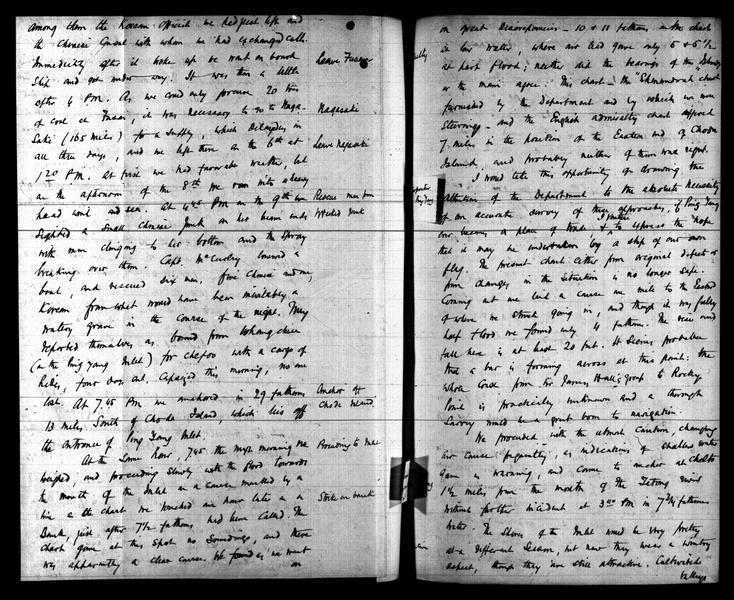 among them the Korean officials we had just left and
the Chinese Consul with whom we had exchanged calls.
Immediately after it woke up we went on board
Leave Fusan
Ship and got under way. It was then a little
after 4 P.M. As we could only procure 20 tons
of Coal at Fusan, it was necessary to go to Naga-
Nagasaki
saki (165 miles) for a supply, which delayed us in
all three days, and we left there on the 6th at
Leave Nagasaki
1.20 P.M. At first we had favorable weather, but
on the afternoon of the 8th we ran into a heavy
head wind and sea. At P.M. on the 9th we
Rescue men from
Sighted a small Chinese junk on her beam ends
Wrecked junk
with men clinging to her bottom and the spray
breaking over them. Capt. McCurley lowered a
boat, and rescued six men, five Chinese and one
Korean from what would have been inevitably a
watery grave in the course of the night. They
reported themselves as bound from
(in the Ping Yang Inlet) for Chefoo with a cargo of
Hides, four days out, capsized this morning, no one
lost. At 7.45 P.M. we anchored in 29 fathoms
Anchor off
13 miles South of Choda Island, which lies off
Choda Island
the entrance of Ping Yang Inlet.
At the same hour, 7.45 the next morning we
Proceeding to Inlet
weighed, and proceeding slowly with the flood towards
the mouth of the Inlet on a course marked by a
line on the chart we touched an hour later on a
Strike on bank
Bank, just after 7½ fathoms had been called. The
chart gave at this spot no soundings, and there
was apparently a clear course. We found as we went
on
on great discrepancies – 10 & 11 fathoms on the chart
in low water, where our lead gave only 5 & 5½
at half flood; neither did the bearings of the Islands
or the main agree. This chart – the "Shenandoah" chart
furnished by the Department and by which we were
steering – and the English admiralty chart differed
7 miles in the position of the Eastern end of Choda
Island, and probably neither of them was right.
I would take this opportunity of drawing the
attention of the Department to the absolute necessity
of an accurate survey of these approaches, if Ping Yang
ever becomes a place of trade & to express the hope
that it may be undertaken by a ship of our own
flag. The present chart either from original defects or
from changes in the situation is no longer safe.
Coming out we laid a course one mile to the Eastward
of where we struck going in, and though it was fully
half flood we found only 4 fathoms. The rise and
fall here is at least 20 feet. It seems probable
that a bar is forming across at this point: the
whole coast from Sir James Hall's group to Rocky
Point is practically unknown and a thorough
Survey would be a great boon to navigation.
We proceeded with the utmost caution, changing
our course frequently, as indications of shallow water
gave us warning, and came to anchor at
1½ miles from the mouth of the Tatong river
without further incident at P.M. in 7¾ fathoms
water. The shores of the Inlet would be very pretty
at a different season, but now they wear a wintry
aspect, though they are still attractive. Cultivated
valleys